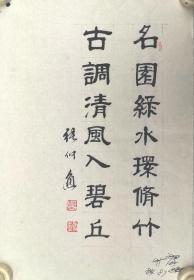 名園綠水環脩竹
古調清風入碧丘